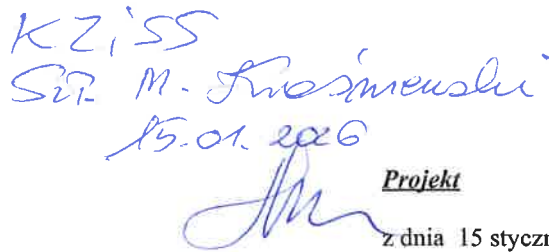 KZiSS
M. Kraśniewski
15.01.2026
Projekt
z dnia 15 styczn